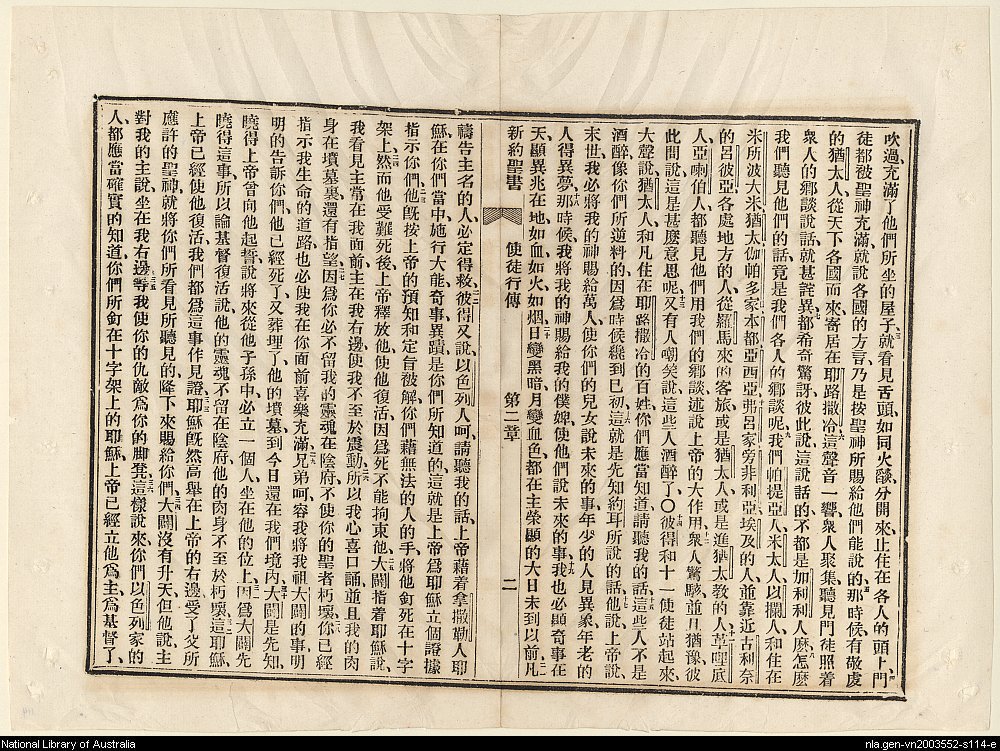 吹過、充滿了他們所坐的屋子、三就看見舌頭、如同火燄、分開來、止住在各人的頭上、四門
徒都被聖神充滿、就說各國的方言、乃是按聖神所賜給他們能說的、五那時候有敬虔
的猶太人、從天下各國而來、寄居在耶路撒冷、六這聲音一響、衆人聚集、聽見門徒照着
衆人的鄉談說話、就甚詫異、七都希奇驚訝、彼此說、這說話的不都是加利利人麽、八怎麽
我們聽見他們的話、竟是我們各人的鄉談呢、九我們帕提亞人、米太人、以攔人、和住在
米所波大米、猶太、伽帕多家、本都、亞西亞、十弗呂家、旁非利亞、埃及的人、並靠近古利奈
的呂彼亞各處地方的人、從羅馬來的客旅、或是猶太人、或是進猶太教的人、十一革哩底
人、亞喇伯人、都聽見他們用我們的鄉談、述說上帝的大作用、十二衆人驚駭、並且猶豫、彼
此問說、這是甚麽意思呢、十三又有人嘲笑說、這些人酒醉了、〇十四彼得和十一使徒站起來、
大聲說、猶太人、和凡住在耶路撒冷的百姓、你們應當知道、請聽我的話、十五這些人不是
酒醉、像你們所逆料的、因爲時候纔到巳初、十六這就是先知約耳所說的話、十七他說、上帝說、
末世我必將我的神賜給萬人、使你們的兒女說未來的事、年少的人見異象、年老的
人得異夢、十八那時候我將我的神賜給我的僕婢、使他們說未來的事、十九我也必顯奇事在
天、顯異兆在地、如血如火如烟、二十日變黑暗、月變血色、都在主榮顯的大日未到以前、二一凡
新約聖書　使徒行傳　第二章　二
禱告主名的人必定得救、二二彼得又說、以色列人呵、請聽我的話、上帝藉着拿撒勒人耶
穌、在你們當中、施行大能奇事異蹟、是你們所知道的、這就是上帝爲耶穌立個證據
指示你們、二三他旣按上帝的預知和定旨被解、你們藉無法的人的手、將他釘死在十字
架上、二四然而他受難死後、上帝釋放他、使他復活、因爲死不能拘束他、二五大闢指着耶穌說、
我看見主常在我面前、主在我右邊、使我不至於震動、二六所以我心喜口誦、並且我的肉
身在墳墓裏還有指望、二七因爲你必不留我的靈魂在陰府、不使你的聖者朽壞、二八你已經
指示我生命的道路、也必使我在你面前喜樂充滿、二九兄弟呵、容我將我祖大闢的事、明
明的告訴你們、他已經死了、又葬埋了、他的墳墓、到今日還在我們境內、三十大闢是先知、
曉得上帝曾向他起誓說、將來從他子孫中、必立一個人、坐在他的位上、三一因爲大闢先
曉得這事、所以論基督復活說、他的靈魂不留在陰府、他的肉身不至於朽壞、三二這耶穌、
上帝已經使他復活、我們都爲這事作見證、三三耶穌旣然高舉在上帝的右邊、受了父所
應許的聖神、就將你們所看見所聽見的、降下來賜給你們、三四大闢沒有升天、但他說、主
對我的主說、坐在我右邊、三五等我使你的仇敵爲你的脚凳、三六這樣說來、你們以色列家的
人、都應當確實的知道你們所釘在十字架上的耶穌、上帝已經立他爲主、爲基督了、
National Library of Australia
nla.gen-vn2003552-s114-e